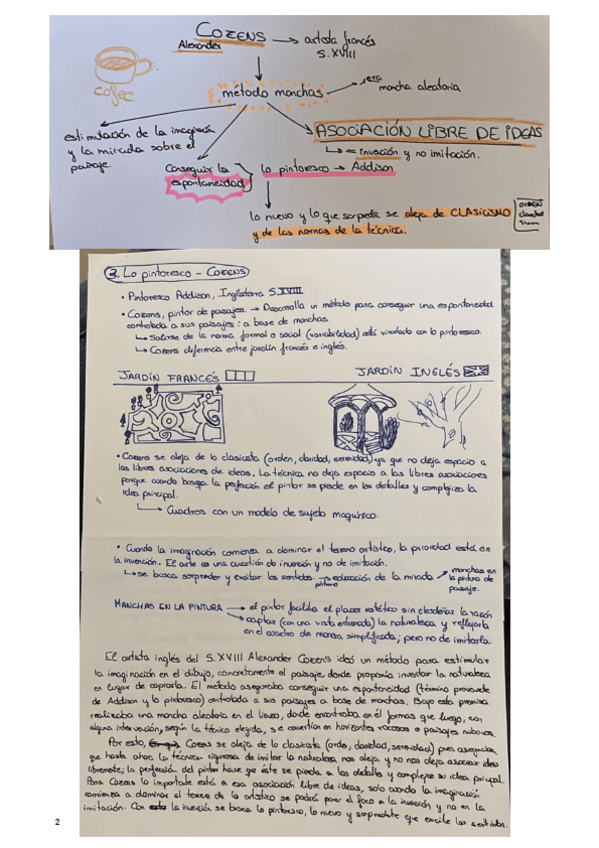 COZENS → artista francés
Alexander
S.XVIII
cofee
método manchas → era mancha aleatoria
estimulación de la imaginación
y la mirada sobre el
paisaje.
ASOCIACIÓN LIBRE DE IDEAS
↳ = invención y no imitación.
Conseguir la
espontaneidad
lo pintoresco → Addison
lo nuevo y lo que sorprende se aleja de CLASICISMO
y de las normas de la técnica.
orden
claridad
3. Lo pintoresco - COZENS
• Pintoresco Addison, Inglaterra S.XVIII
• Cozens, pintor de paisajes. → Desarrolla un método para conseguir una espontaneidad
controlada a sus paisajes: a base de manchas.
↳ Salirse de la norma formal o social (variabilidad) está vinculado con lo pintoresco.
↳ Cozens diferencia entre jardín francés e inglés.
JARDÍN FRANCÉS
JARDÍN INGLÉS
• Cozens se aleja de lo clasicista (orden, claridad, serenidad) ya que no deja espacio a
las libres asociaciones de ideas. La técnica no deja espacio a las libres asociaciones
porque cuando busca la perfección el pintor se pierde en los detalles y complejiza la
idea principal.
↳ Cuadros con un modelo de sujeto maquínico.
• Cuando la imaginación comienza a dominar el terreno artístico, la prioridad está en
la invención. El arte es una cuestión de invención y no de imitación.
↳ se busca sorprender y excitar los sentidos. → educación de la mirada → manchas en
la pintura de
paisaje.
MANCHAS EN LA PINTURA → el pintor facilita el placer estético sin desdeñar la razón
→ captar (con una vista entrenada) la naturaleza y reflejarla
en el cuadro de manera simplificada; pero no de imitarla.
El artista inglés del S.XVIII Alexander Cozens ideó un método para estimular
la imaginación en el dibujo, concretamente el paisaje, donde proponía inventar la naturaleza
en lugar de copiarla. El método aseguraba conseguir una espontaneidad (término proveniente
de Addison y lo pintoresco) controlada a sus paisajes a base de manchas. Bajo esta premisa
realizaba una mancha aleatoria en el lienzo, donde encontraba en él formas que luego, con
alguna intervención, según la técnica elegida, se convertían en horizontes rocosos o paisajes nubosos.
Por esto, Cozens se aleja de lo clasicista (orden, claridad, serenidad) pues aseguraba,
que hasta ahora la técnica rigurosa de imitar la naturaleza nos aleja y no nos deja asociar ideas
libremente; la perfección del pintor hace que éste se pierda en los detalles y complejice su idea principal.
Para Cozens lo importante está en esa asociación libre de ideas, solo cuando la imaginación
comienza a dominar el terreno de lo artístico se podrá poner el foco en la invención y no en la
imitación. Con esto la invención se busca lo pintoresco, lo nuevo y sorprendente que excite los sentidos.
2